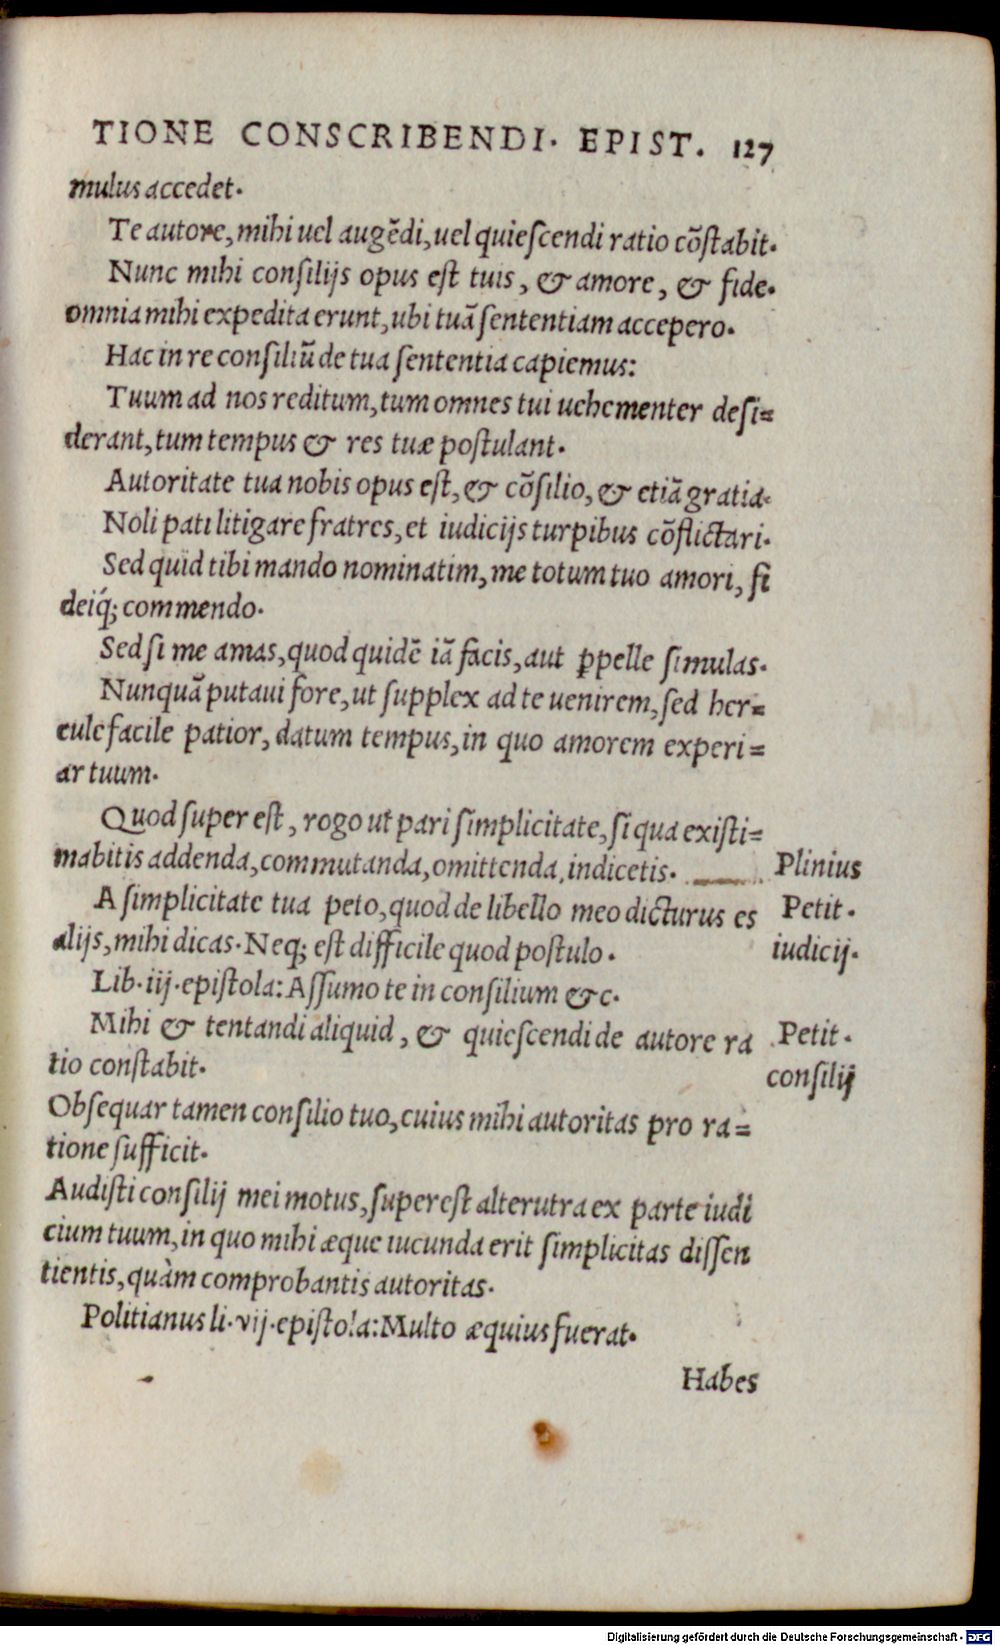 TIONE CONSCRIBENDI. EPIST. 127
mulus accedet.
Te autore, mihi uel augẽdi, uel quieſcendi ratio cõſtabit.
Nunc mihi conſilijs opus eſt tuis, & amore, & fide.
omnia mihi expedita erunt, ubi tuã ſententiam accepero.
Hac in re conſiliũ de tua ſententia capiemus:
Tuum ad nos reditum, tum omnes tui uehementer deſi=
derant, tum tempus & res tuæ poſtulant.
Autoritate tua nobis opus eſt, & cõſilio, & etiã gratia.
Noli pati litigare fratres, et iudicijs turpibus cõflictari.
Sed quid tibi mando nominatim, me totum tuo amori, fi
deiq́; commendo.
Sed ſi me amas, quod quidẽ iã facis, aut ꝑpelle ſimulas.
Nunquã putaui fore, ut ſupplex ad te uenirem, ſed her=
cule facile patior, datum tempus, in quo amorem experi=
ar tuum.
Quod ſuper eſt, rogo ut pari ſimplicitate, ſi qua exiſti=
mabitis addenda, commutanda, omittenda, indicetis.
Plinius
A ſimplicitate tua peto, quod de libello meo dicturus es
Petit.
alijs, mihi dicas. Neq; eſt difficile quod poſtulo.
iudicij.
Lib. iij. epiſtola: Aſſumo te in conſilium &c.
Mihi & tentandi aliquid, & quieſcendi de autore ra
Petit.
tio conſtabit.
conſilij
Obſequar tamen conſilio tuo, cuius mihi autoritas pro ra=
tione ſufficit.
Audiſti conſilij mei motus, ſupereſt alterutra ex parte iudi
cium tuum, in quo mihi æque iucunda erit ſimplicitas diſſen
tientis, quàm comprobantis autoritas.
Politianus li. vij. epiſtola: Multo æquius fuerat.
Habes
Digitalisierung gefördert durch die Deutsche Forschungsgemeinschaft - DFG